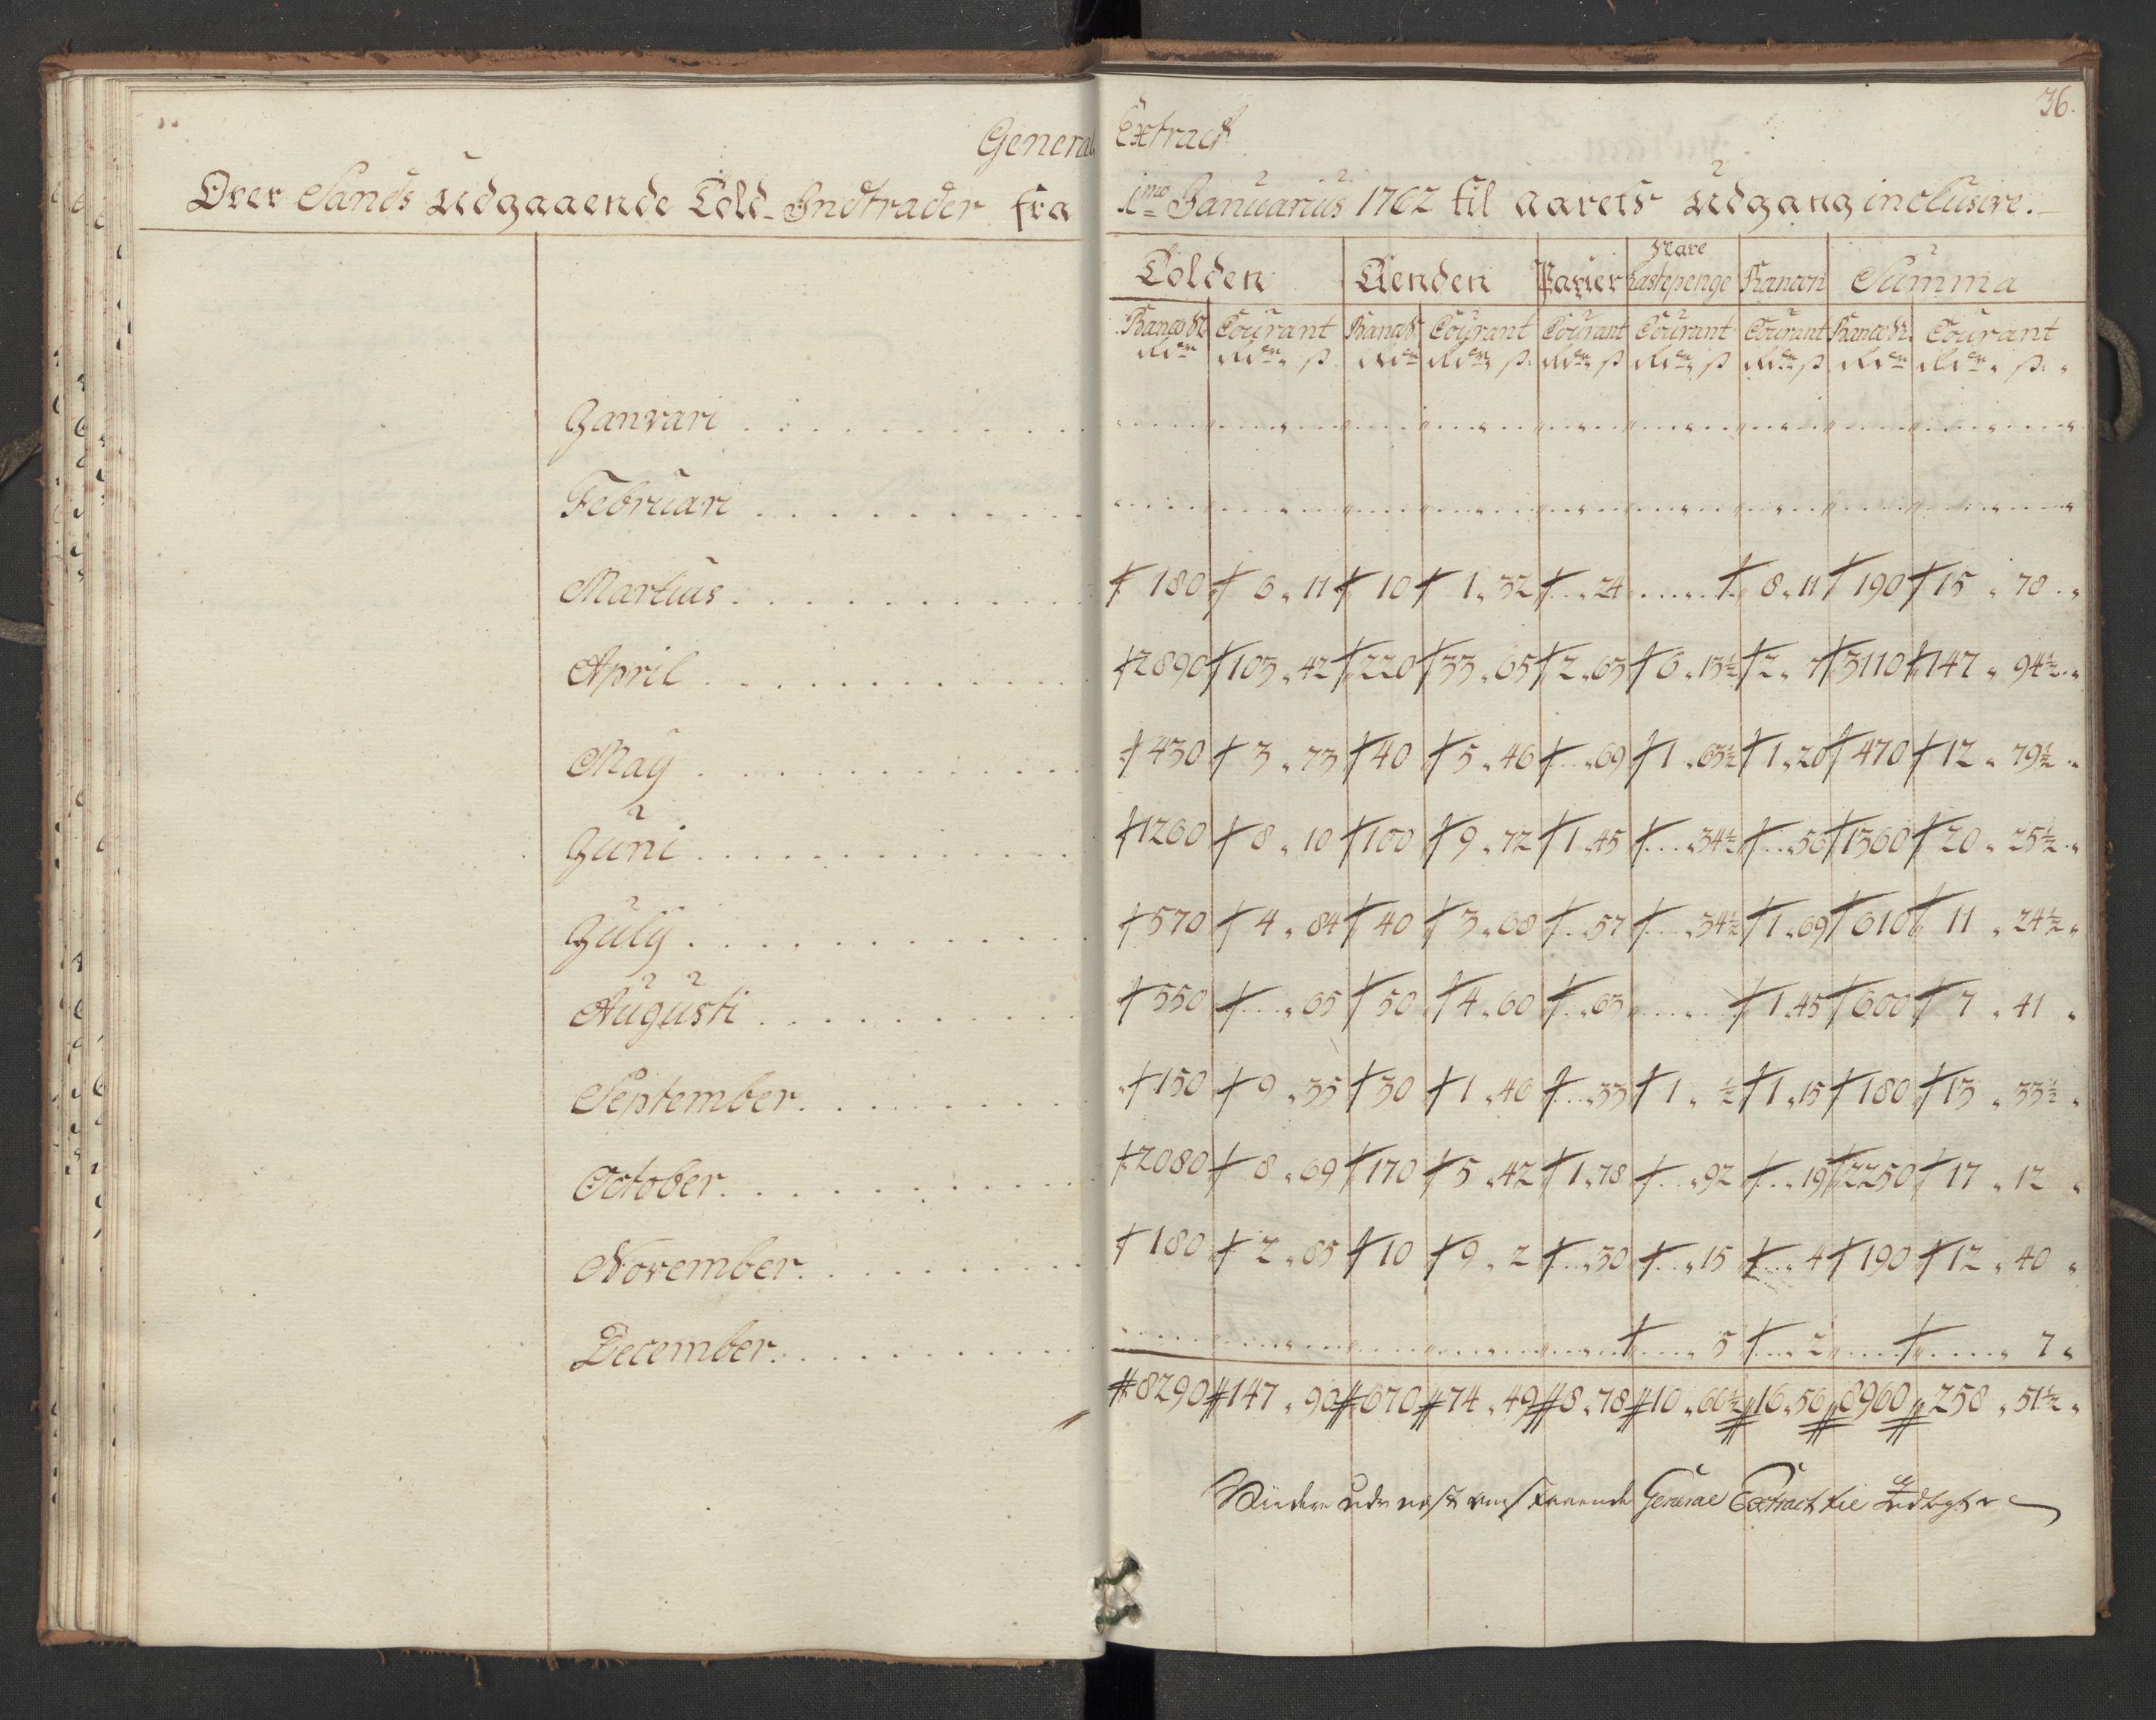 36.
General Extract
Over Sands Udgaaende Told-Indtrader fra 1mo Januarius 1762 til aarets Udgang inclusive.
Tolden Tienden Papier Lastepenge Summa
Courant Courant Courant Courant Courant Courant
Januari
Februari
Martius 180 6 " 11 10 1 " 32 " 24 8 " 11 190 15 " 78 "
April 2890 103 " 42 220 33 " 65 2 " 63 6 " 13½ 2 " 7 3110 147 " 94½ "
May 430 3 " 73 40 5 " 46 " 69 1 " 63½ 1 " 20 470 12 " 79½ "
Juni 1260 8 " 10 100 9 " 72 1 " 45 " 34½ " 56 1360 20 " 25½ "
July 570 4 " 84 40 3 " 68 " 57 " 34½ 1 " 69 610 11 " 24½ "
Augusti 550 " 65 50 4 " 60 " 63 1 " 45 600 7 " 41 "
September 150 9 " 35 30 1 " 46 " 33 1 " ½ 1 " 15 180 13 " 33½ "
October 2080 8 " 69 170 5 " 42 1 " 78 " 92 " 19 2250 17 " 12 "
November 180 2 " 85 10 9 " 2 " 30 " 15 " 4 190 12 " 40 "
December " 5 " 2 " 7 "
8290 147 " 90 670 74 " 49 8 " 78 10 " 66½ 16 " 56 8960 258 " 51½ "
General Extract